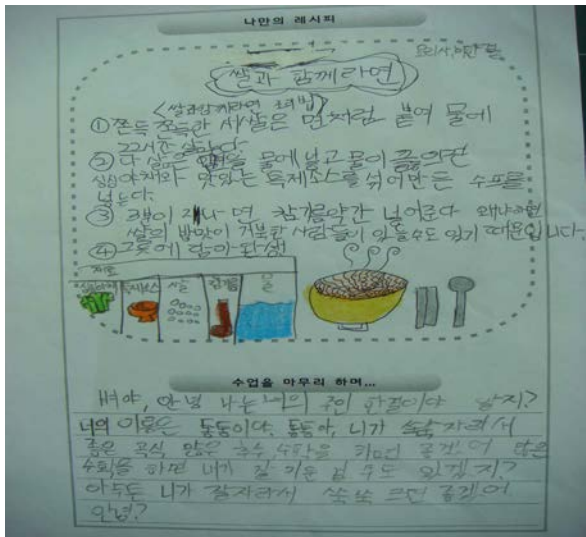 나만의 레시피
요리사, 이한결
쌀과 함께라면
<쌀과함께라면 조리법>
① 쫀득 쫀득한 서쌀은 면처럼 붙여 물에
22시간 삶는다
② 다 삶은 면을 물에 넣고 물이 끓으면
싱싱야채와 맛있는 특제소스를 섞어만든 수프를
넣는다.
③ 3분이 지나면 참기름약간 넣어준다 왜냐하면
쌀의 밥맛이 거북한 사람들이 있을수도 있기 때문입니다.
④ 그릇에 담아 완성
재료
싱싱야채 특제소스 쌀 참기름 물
수업을 마무리 하며...
벼야, 안녕 나는 너의 주인 한결이야 알지?
너의 이름은 통통이야. 통통아, 니가 쑥쑥 자라서
좋은 곡식 많은 수확을 하면 좋겠어 많은
수확을 하면 내가 잘 키운 걸 수도 있겠지?
아무튼 니가 잘자라서 쑥쑥 크면 좋겠어
안녕?